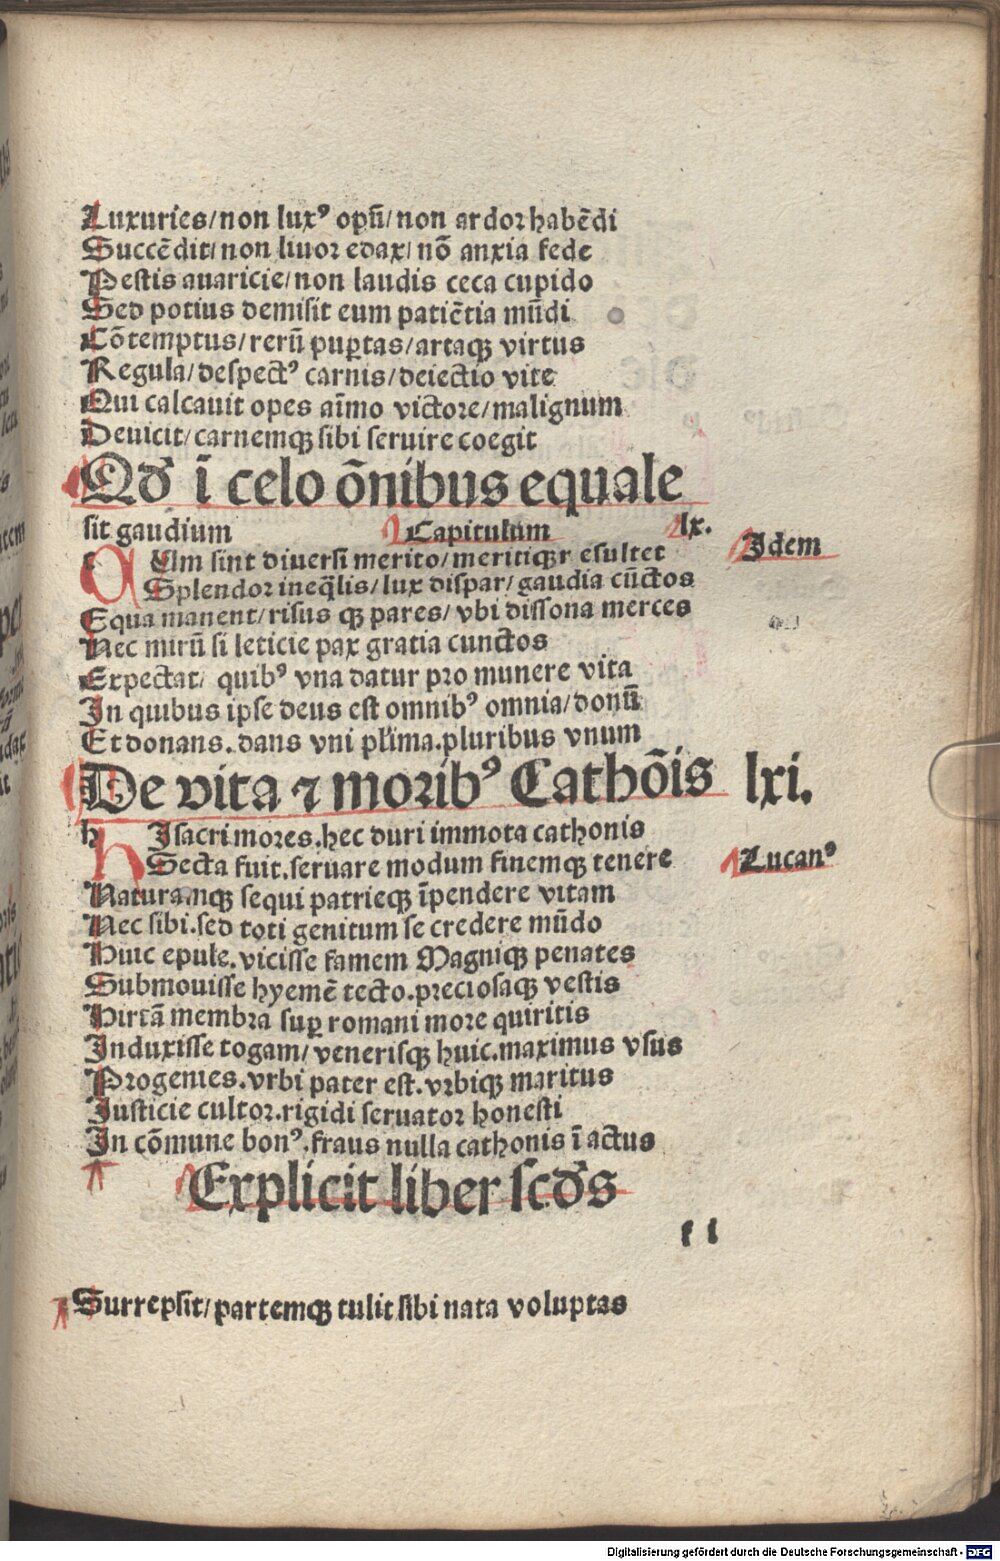 Luxuries/non luxꝰ opũ/non ardor habẽdi
Succẽdit/non livor edax/nõ anxia fede
Pestis auaricie/non laudis ceca cupido
Sed potius demisit eum patiẽtia mũdi
Cõtemptus/rerũ puꝑtas/artaqꝫ virtus
Regula/despectꝰ carnis/deiectio vite
Qui calcauit opes aĩmo victore/malignum
Deuicit/carnemqꝫ sibi seruire coegit
Qđ ĩ celo õnibus equale
sit gaudium Capitulum lx.
c Um sint diuersi merito/meritiqꝫ r esultet Idem
Splendor ineq̃lis/lux dispar/gaudia cũctos
Equa manent/risus qꝫ pares/vbi dissona merces
Nec mirũ si leticie pax gratia cunctos
Expectat/ quibꝰ vna datur pro munere vita
In quibus ipse deus est omnibꝰ omnia/donũ
Et donans.dans vni pl̃ima.pluribus vnum
De vita ⁊ moribꝰ Cathõis lxi.
h Isacri mores.hec duri immota cathonis
Secta fuit.seruare modum finemqꝫ tenere Lucanꝰ
Naturamqꝫ sequi patrieqꝫ ĩpendere vitam
Nec sibi.sed toti genitum se credere mũdo
Huic epule.vicisse famem Magniqꝫ penates
Submouisse hyemẽ tecto.preciosaqꝫ vestis
Hirtã membra suꝑ romani more quiritis
Induxisse togam/venerisqꝫ huic.maximus vsus
Progenies.vrbi pater est.vrbiqꝫ maritus
Iusticie cultor.rigidi seruator honesti
In cõmune bonꝰ.fraus nulla cathonis ĩ actus
Explicit liber scđs
f i
Surrepsit/partemqꝫ tulit sibi nata voluptas
Digitalisierung gefördert durch die Deutsche Forschungsgemeinschaft - DFG